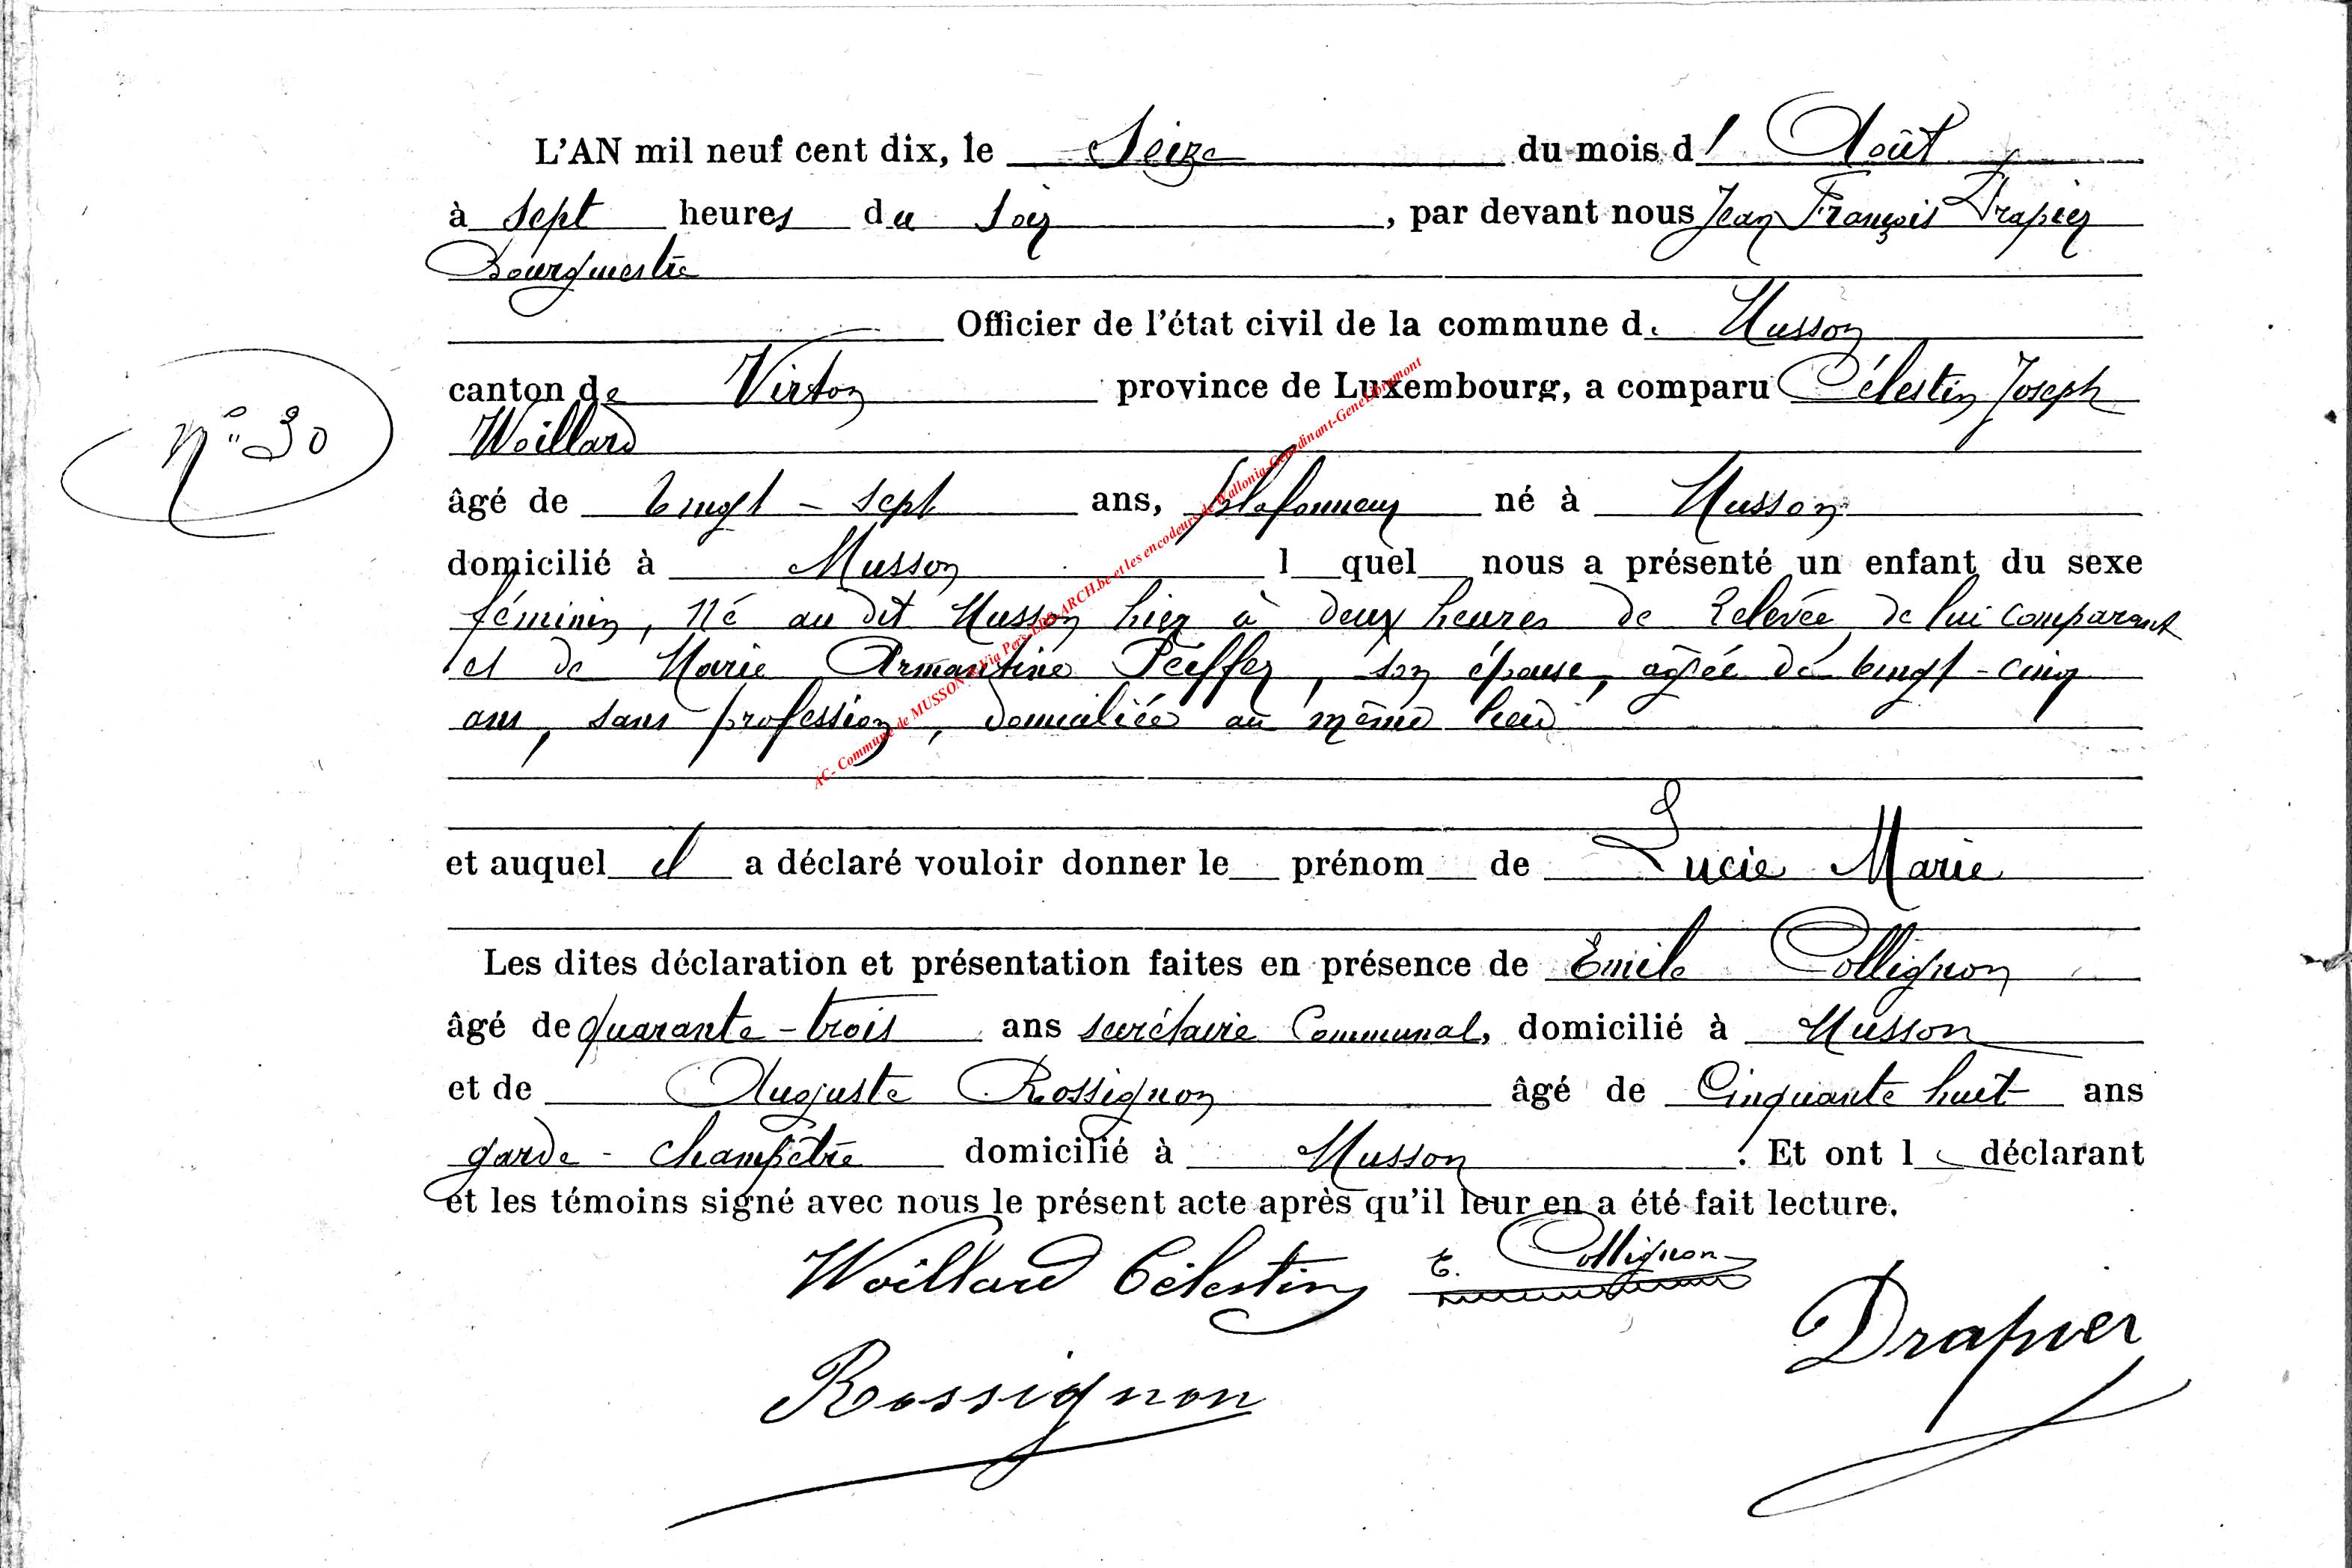 L'AN mil neuf cent dix, le Seize du mois d' Août
à Sept heures du Soir, par devant nous Jean François Drapier
Bourgmestre
Officier de l'état civil de la commune de Musson
canton de Virton province de Luxembourg, a comparu Célestin Joseph
N° 30
Woillard
âgé de vingt-sept ans, plafonneur né à Musson
domicilié à Musson l quel nous a présenté un enfant du sexe
féminin, né au dit Musson hier à deux heures de relevée de lui comparant
et de Marie Armantine Péiffer, son épouse, agée de vingt-cinq
ans, sans profession, domiciliée au même lieu
AC- Commune de MUSSON Via Pers-LDS-ARCH.be et les encodeurs de Wallonia-Genedinant-GeneLibramont
et auquel il a déclaré vouloir donner le prénom de Lucie Marie
Les dites déclaration et présentation faites en présence de Emile Collignon
âgé de quarante-trois ans secrétaire Communal, domicilié à Musson
et de Auguste Rossignon âgé de Cinquante huit ans
garde-champêtre domicilié à Musson. Et ont le déclarant
et les témoins signé avec nous le présent acte après qu'il leur en a été fait lecture.
Woillard Célestin E. Collignon
Drapier
Rossignon